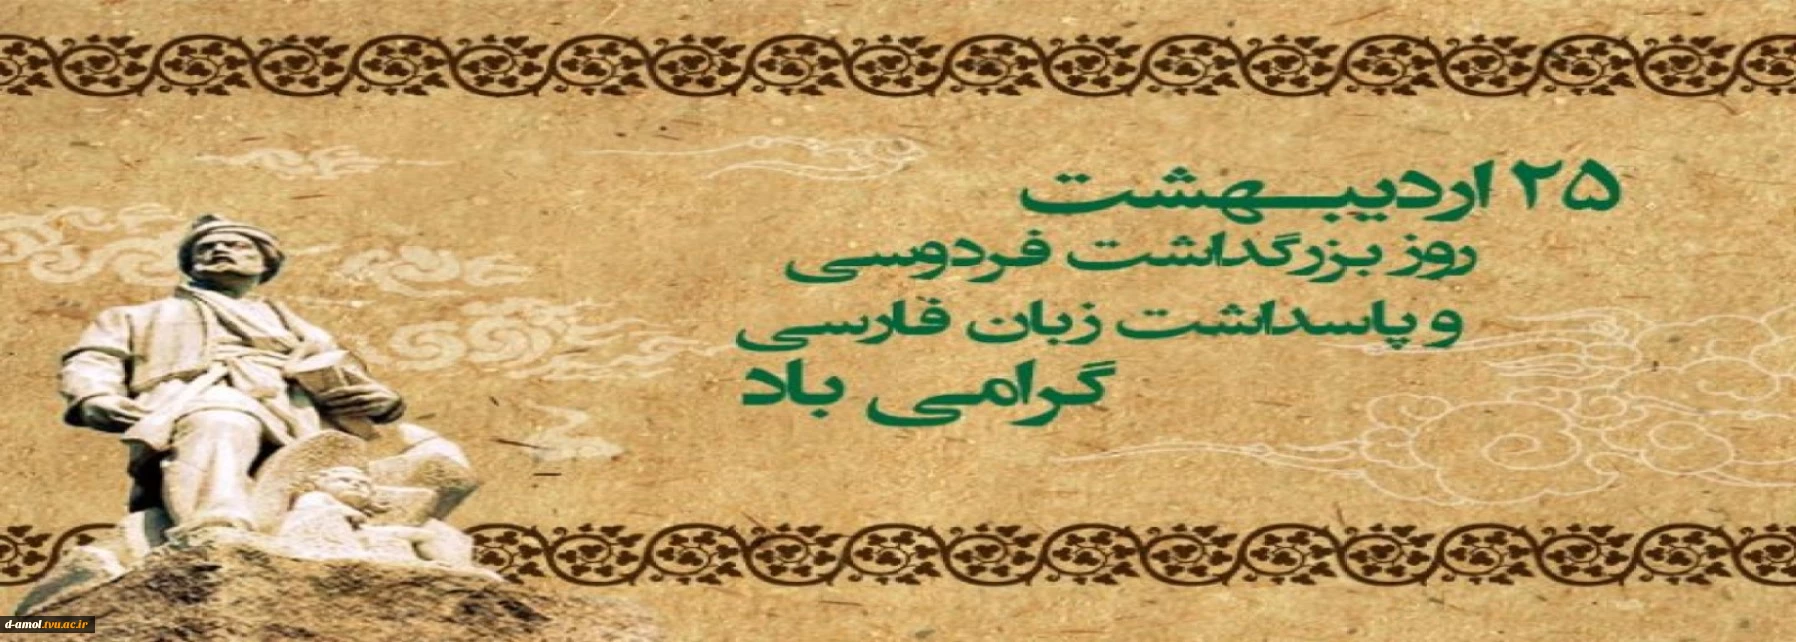 ۲۵ اردیبهشت
روز بزرگداشت فردوسی
و پاسداشت زبان فارسی
گرامی باد
d-amol.tvu.ac.ir